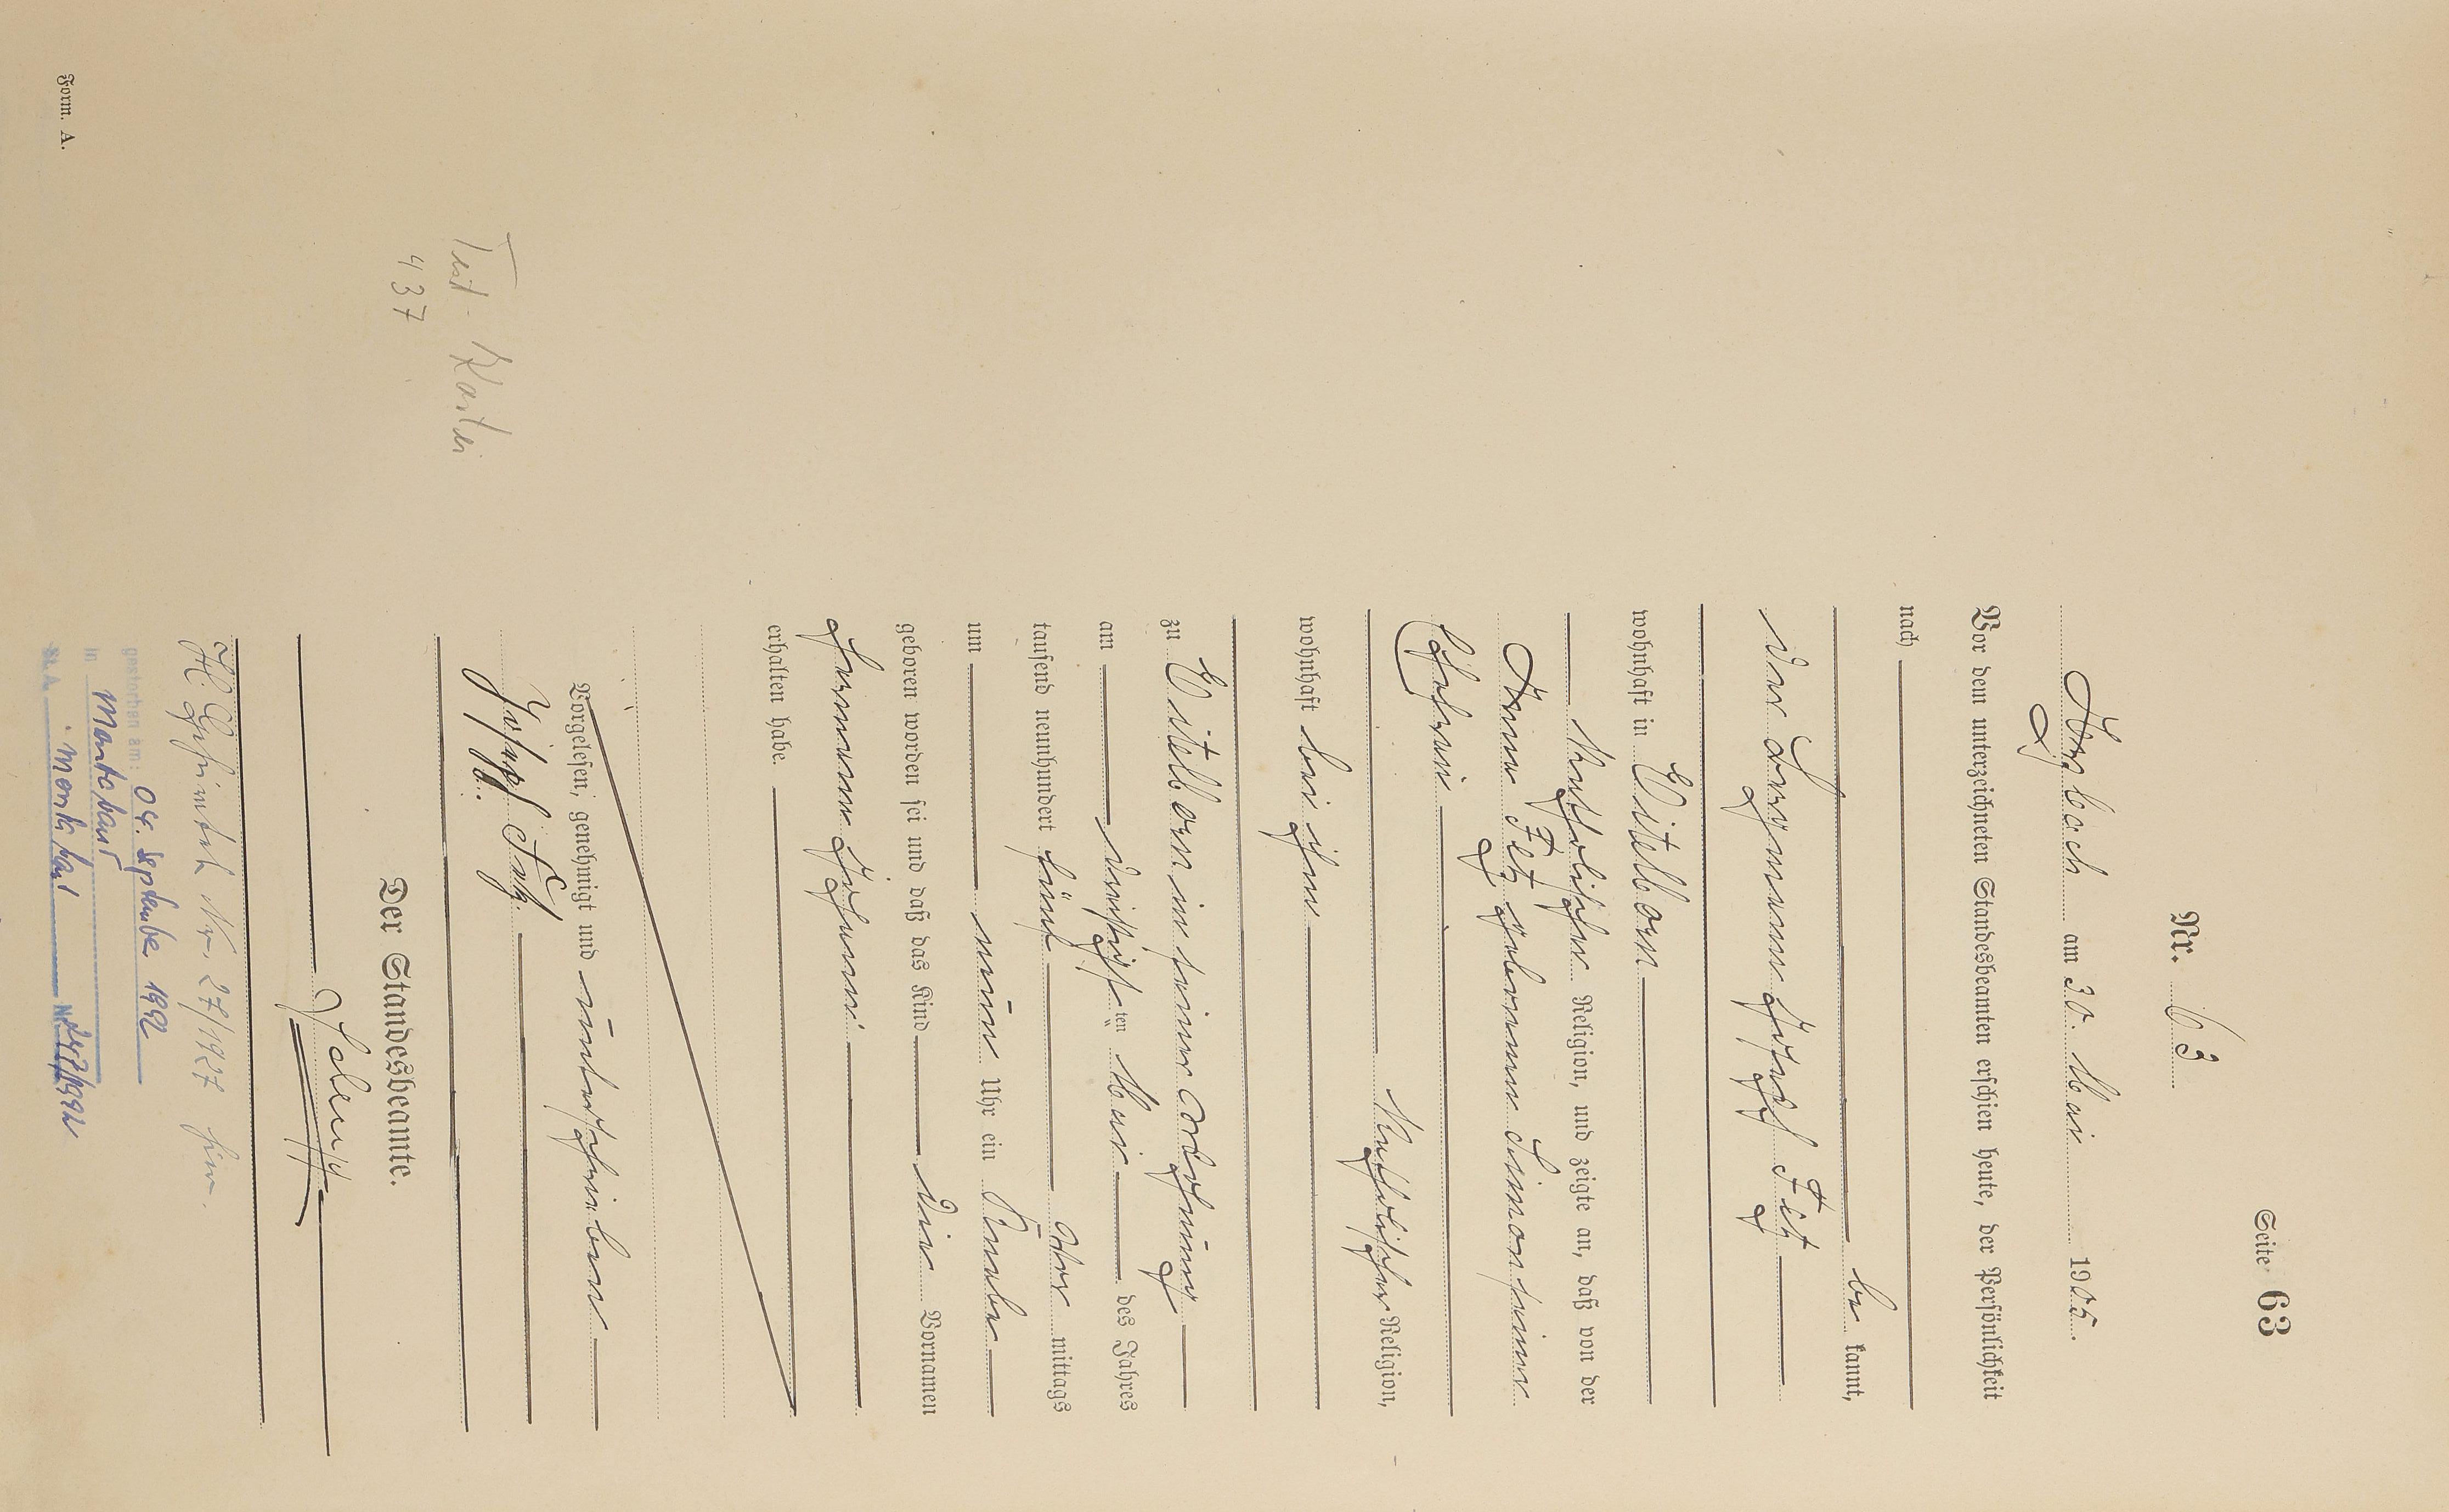 Seite 63
Nr. 63
am 30. Mai 1905.
Vor dem unterzeichneten Standesbeamten erschien heute, der Persönlichkeit
nach
be kannt,
der Bergmann Joseph
wohnhaft in Eitelborn
katholischer Religion, und zeigte an, daß von der
Anna geborenen Simon seiner
Ehefrau
katholischer Religion,
wohnhaft bei ihm
zu Eitelborn in seiner Wohnung
am dreißigsten Mai des Jahres
tausend neunhundert fünf mittags
um neun Uhr ein Knabe
geboren worden sei und daß das Kind die Vornamen
Hermann Johann
erhalten habe.
Vorgelesen, genehmigt und unterschrieben
Josef
Der Standesbeamte.
H. Geheiratet Nr. 27/1927 hier.
gestorben am: 04. September 1992
in Montabaur
St. A. Montabaur Nr. 247/1992
437
Form. A.